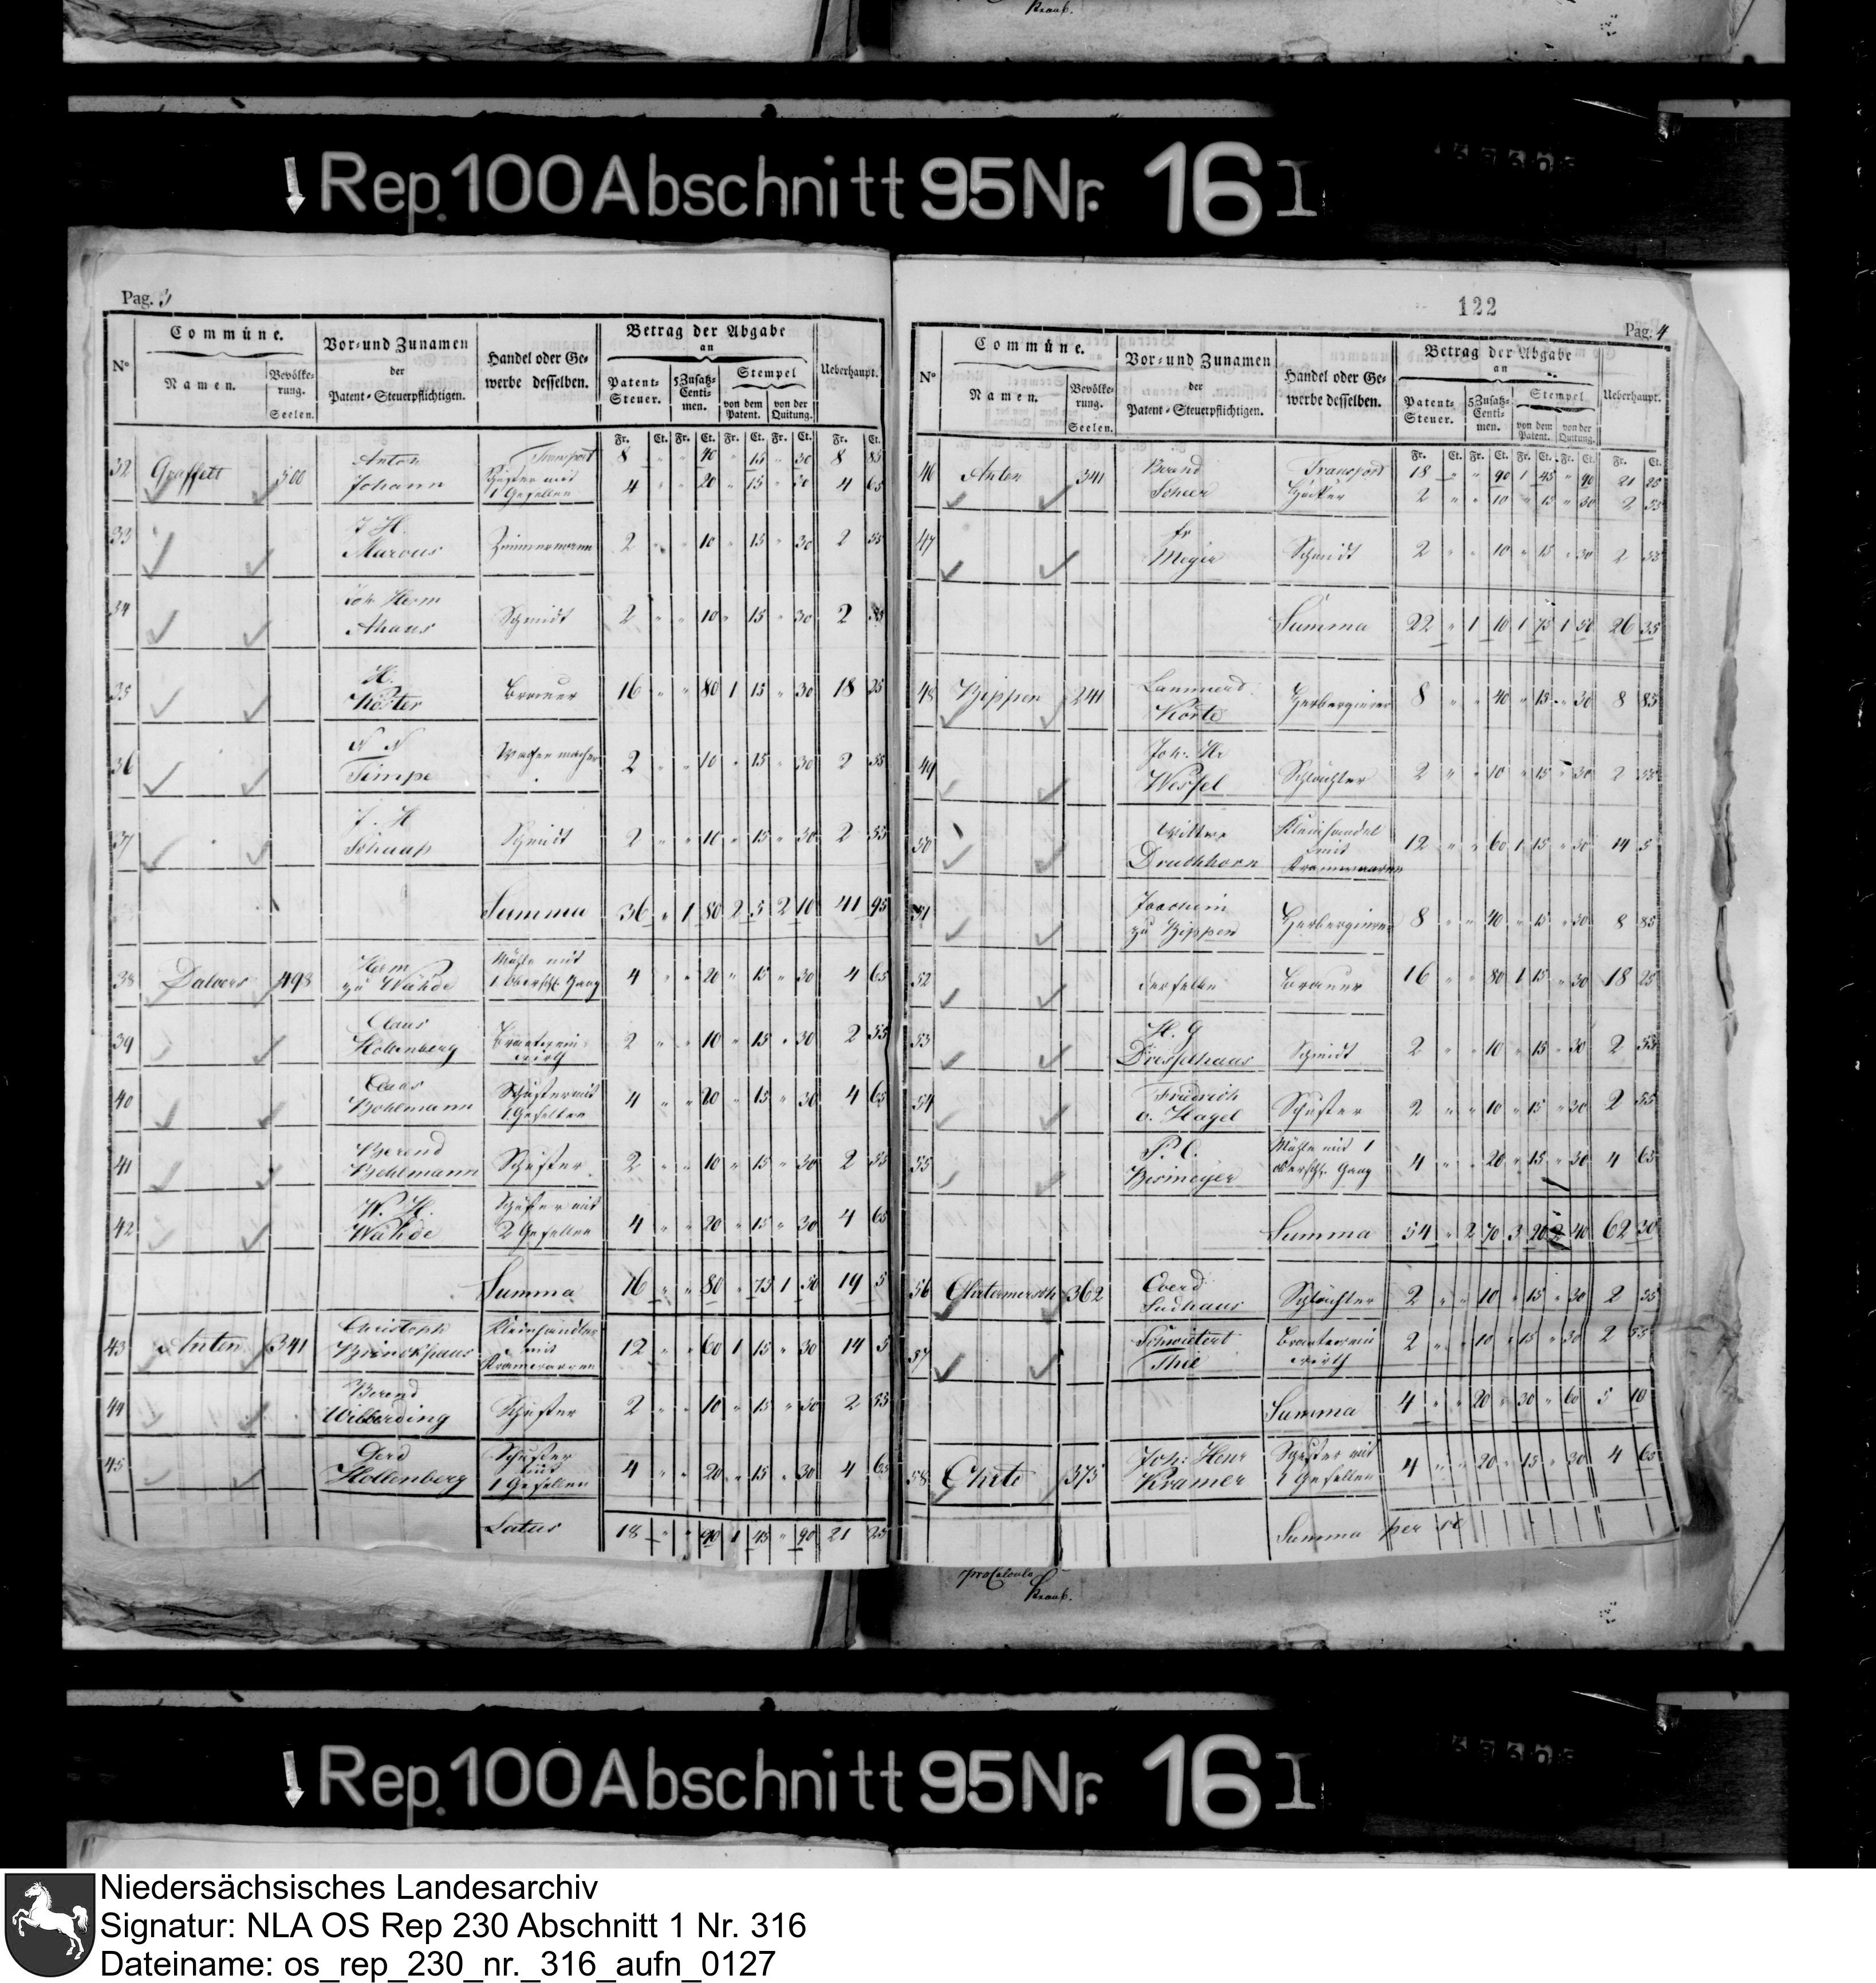 Kraus.
Rep. 100 Abschnitt 95 Nr. 16 I
Pag. 3
N° Commüne. Vor- und Zunamen der Patent-Steuerpflichtigen. Handel oder Gewerbe desselben. Betrag der Abgabe an Ueberhaupt.
Namen. Bevölkerung. Seelen. Patent-Steuer. 5 Zusatz-Centimen. Stempel von dem Patent. von der Quitung.
Fr. Ct. Fr. Ct. Fr. Ct. Fr. Ct. Fr. Ct.
Transport 8 " " 40 " 15 " 30 8 85
32 Graffelt 500 Anton Johann Schuster mit 1 Gesellen 4 " " 20 " 15 " 30 4 65
33 J H Marcus Zimmermann 2 " " 10 " 15 " 30 2 55
34 Joh Herm Ahaus Schmidt 2 " " 10 " 15 " 30 2 55
35 H. Köster Brauer 16 " " 80 1 15 " 30 18 25
36 N N Timpe 2 " " 10 " 15 " 30 2 55
37 J. H Schaap Schmidt 2 " " 10 " 15 " 30 2 55
Summa 36 " 1 80 2 5 2 10 41 95
38 Dalvers 498 Herm zu Wähde Mühle mit 1 oberschl. Gang 4 " " 20 " 15 " 30 4 65
39 Claus Hollenberg Brantweinwirth 2 " " 10 " 15 " 30 2 55
40 Claas Bohlmann Schuster mit 1 Gesellen 4 " " 20 " 15 " 30 4 65
41 Berend Bohlmann Schuster 2 " " 10 " 15 " 30 2 55
42 W. H. Wähde Schuster mit 2 Gesellen 4 " " 20 " 15 " 30 4 65
Summa 16 " " 80 " 75 1 50 19 5
43 Anten 341 Christoph Brinckhaus Kleinhandler mit Kramwaaren 12 " " 60 1 15 " 30 14 5
44 Berend Wilberding Schuster 2 " " 10 " 15 " 30 2 55
45 Gerd Hollenberg Schuster mit 1 Gesellen 4 " " 20 " 15 " 30 4 65
Latus 18 " " 90 1 45 " 90 21 25
122
Pag. 4
N° Commüne. Vor- und Zunamen der Patent-Steuerpflichtigen. Handel oder Gewerbe desselben. Betrag der Abgabe an Ueberhaupt.
Namen. Bevölkerung. Seelen. Patent-Steuer. 5 Zusatz-Centimen. Stempel von dem Patent. von der Quitung.
Fr. Ct. Fr. Ct. Fr. Ct. Fr. Ct. Fr. Ct.
Transport 18 " " 90 1 45 " 90 21 25
46 Anten 341 Berend Scheer Höcker 2 " " 10 " 15 " 30 2 55
47 fr Meyer Schmidt 2 " " 10 " 15 " 30 2 55
Summa 22 " 1 10 1 75 1 50 26 35
48 Bippen 241 Lammerd Korte Herbergierer 8 " " 40 " 15 " 30 8 85
49 Joh. Hr Wessel Schlächter 2 " " 10 " 15 " 30 2 55
50 Wittwe Druchhorn Kleinhandel mit Kramwaaren 12 " " 60 1 15 " 30 14 5
51 Joachim zu Bippen Herbergierer 8 " " 40 " 15 " 30 8 85
52 derselbe Brauer 16 " " 80 1 15 " 30 18 25
53 H. G Dresselhaus Schmidt 2 " " 10 " 15 " 30 2 55
54 Friedrich v. Hagel Schuster 2 " " 10 " 15 " 30 2 55
55 P. C. Biermeyer Mühle mit 1 oberschl. Gang 4 " " 20 " 15 " 30 4 65
Summa 54 " 2 70 3 20 2 40 62 30
56 362 Everd Sudhaus Schlächter 2 " " 10 " 15 " 30 2 55
57 Schwietert Thie Brantweinwirth 2 " " 10 " 15 " 30 2 55
Summa 4 " " 20 " 30 " 60 5 10
58 Ohrte 375 Joh: Henr Kramer Schuster mit 1 Gesellen 4 " " 20 " 15 " 30 4 65
Summa per se
pro Calculo
Kraus.
Rep. 100 Abschnitt 95 Nr. 16 I
Niedersächsisches Landesarchiv
Signatur: NLA OS Rep 230 Abschnitt 1 Nr. 316
Dateiname: os_rep_230_nr._316_aufn_0127